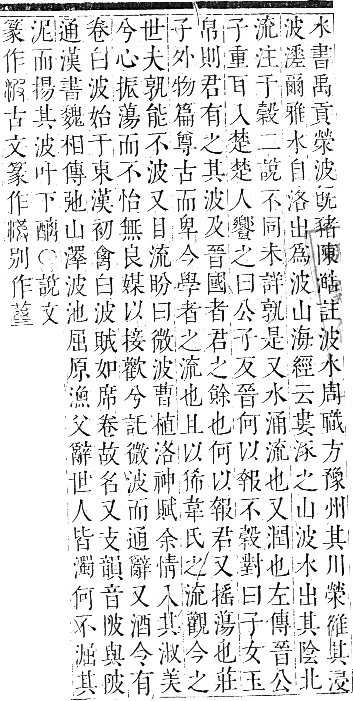 水書禹貢滎波旣豬陳皓註波水周職方豫州其川滎雒其浸
波溠爾雅水自洛出爲波山海經云婁涿之山波水出其陰北
流注于穀二說不同未詳孰是又水涌流也又潤也左傳晉公
子重耳入楚楚人饗之曰公子反晉何以報不穀對曰子女玉
帛則君有之其波及晉國者君之餘也何以報君又搖蕩也莊
子外物篇尊古而卑今學者之流也且以狶韋氏之流觀今之
世夫孰能不波又目流盼曰微波曹植洛神賦余情入其淑美
兮心振蕩而不怡無良媒以接歡兮託微波而通辭又酒令有
卷白波始于東漢初禽白波賊如席卷故名又支韻音陂與陂
通漢書魏相傳弛山澤波池屈原漁父辭世人皆濁何不淈其
泥而揚其波叶下醨〇說文
篆作 古文篆作 別作